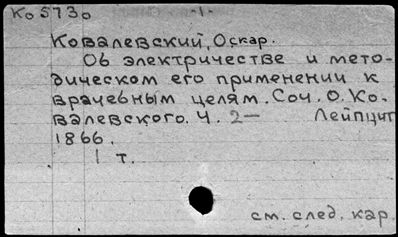 Ко 5730 -1-
Ковалевский, Оскар.
Об электричестве и мето-
дическом его применении к
врачебным целям. Соч. О. Ко-
валевского. Ч. 2— Лейпциг
1866.
1 т.
см. след. кар.